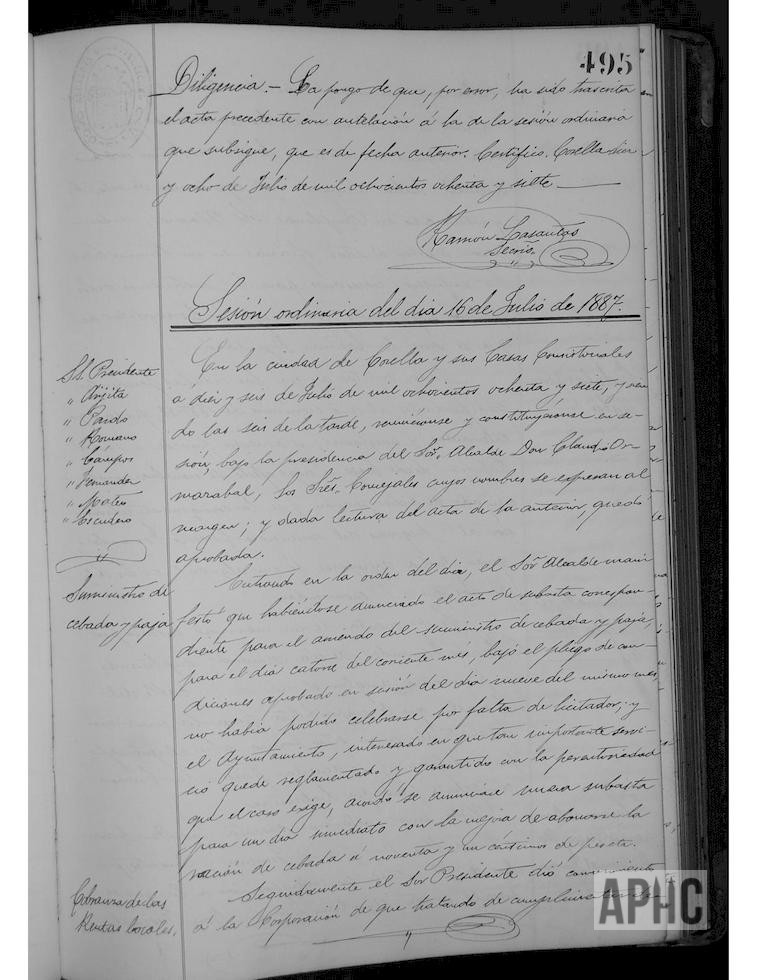 495
Diligencia.- La pongo de que, por error, ha sido trascrita
el acta precedente con antelación á la de la sesión ordinaria
que subsigue, que es de fecha anterior. Certifico. Corella diez
y ocho de Julio de mil ochocientos ochenta y siete
Ramón Lasantas
Secrio.
Sesión ordinaria del dia 16 de Julio de 1887.
S.S. Presidente
" Arjita
" Pardo
" Romano
" Campos
" Fernandez
" Mateo
" Escudero
En la ciudad de Corella y sus Casas Consistoriales
á diez y seis de Julio de mil ochocientos ochenta y siete, y sien
do las seis de la tarde, reuniéronse y constituyéronse en se-
sión, bajo la presidencia del Sor. Alcalde Don Claudio Or-
marabal, los Sres. Concejales cuyos nombres se espresan al
margen; y dada lectura del acta de la anterior, quedó
aprobada.
Suministro de
cebada y paja
Entrando en la orden del dia, el Sor. Alcalde mani
festó que habiéndose anunciado el acto de subasta correspon-
diente para el arriendo del suministro de cebada y paja,
para el dia catorce del corriente mes, bajo el pliego de con-
diciones aprobado en sesión del dia nueve del mismo mes,
no había podido celebrarse por falta de licitador; y
el Ayuntamiento, interesado en que tan importante servi-
cio quede reglamentado y garantido con la perentoriedad
que el caso exige, acordó se anunciase nueva subasta
para un dia inmediato con la mejora de abonarse la
ración de cebada á noventa y un céntimos de peseta.
Cobranza de las
Rentas locales.
Seguidamente el Sor Presidente dió conocimiento
á la Corporación de que tratando de cumplimentar
APHC